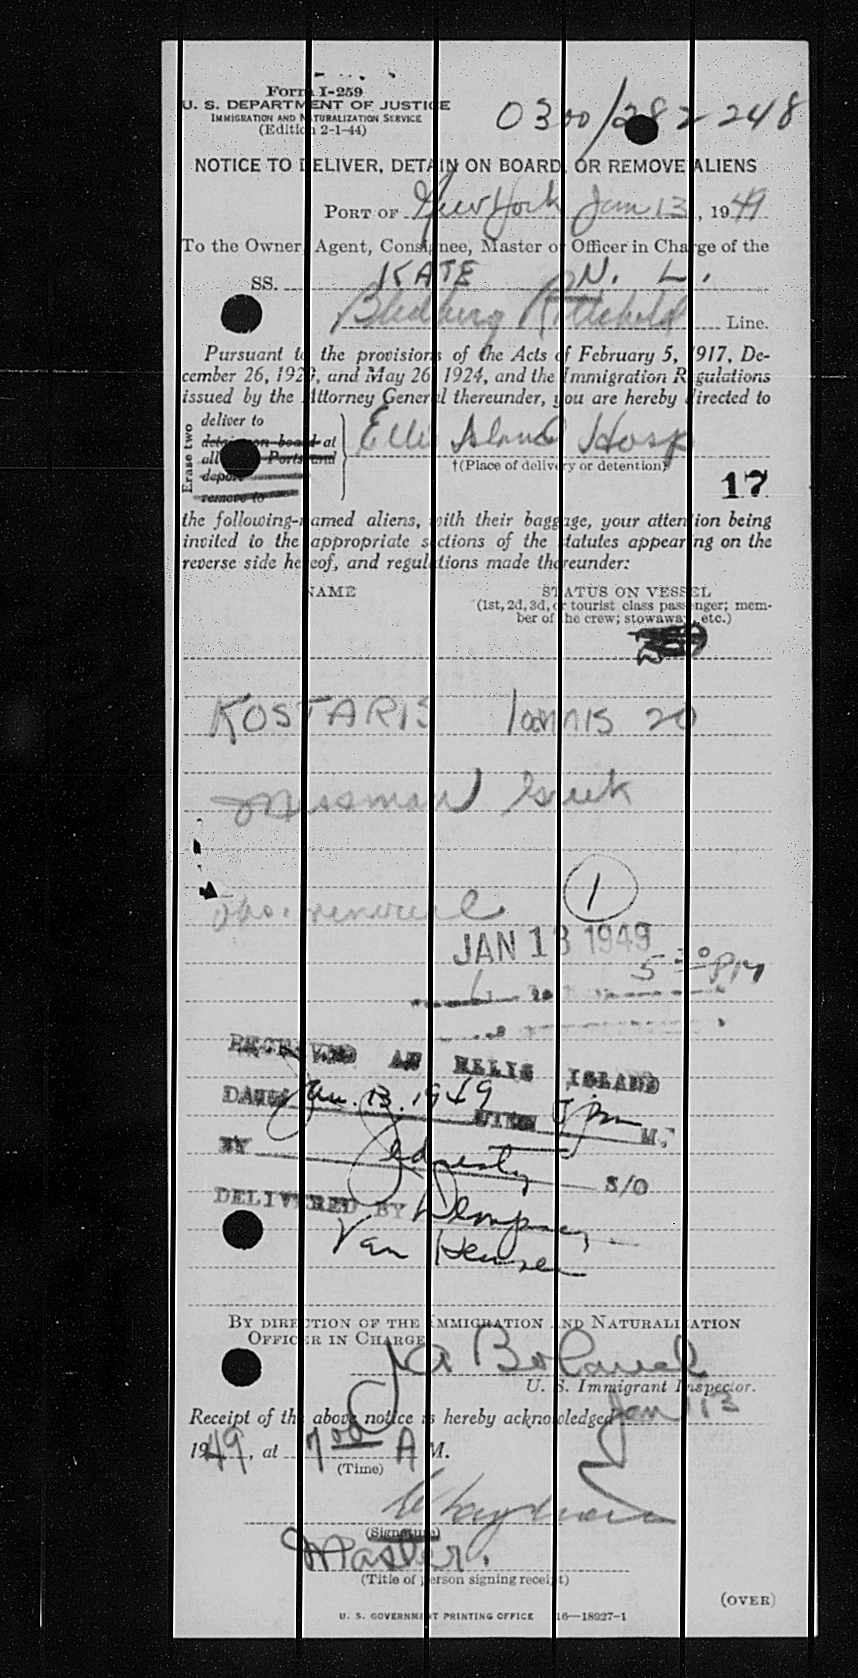 Form I-259
U. S. DEPARTMENT OF JUSTICE
IMMIGRATION AND NATURALIZATION SERVICE
(Edition 2-1-44)
0300/282248
NOTICE TO DELIVER, DETAIN ON BOARD, OR REMOVE ALIENS
PORT OF New York Jan 13, 1949
To the Owner, Agent, Consignee, Master or Officer in Charge of the
SS. KATE N. L.
Line.
Pursuant to the provisions of the Acts of February 5, 1917, De-
cember 26, 1920, and May 26, 1924, and the Immigration Regulations
issued by the Attorney General thereunder, you are hereby directed to
Erase two
deliver to
detain on board at
all Ports and
deport
remove to
Ellis Island Hosp
†(Place of delivery or detention)
17
the following-named aliens, with their baggage, your attention being
invited to the appropriate sections of the statutes appearing on the
reverse side hereof, and regulations made thereunder:
NAME STATUS ON VESSEL
(1st, 2d, 3d, or tourist class passenger; mem-
ber of the crew; stowaway, etc.)
KOSTARIS Ioannis 20
Messman Greek
1
JAN 13 1949
5 30 PM
RECEIVED AT ELLIS ISLAND
DATE Jan. 13. 1949 TIME 5 pm M.
BY S/O
DELIVERED BY Dempsey
Van
BY DIRECTION OF THE IMMIGRATION AND NATURALIZATION
OFFICER IN CHARGE
U. S. Immigrant Inspector.
Receipt of the above notice is hereby acknowledged Jan 13
1949, at 7 00 A M.
(Time)
(Signature)
Master.
(Title of person signing receipt)
(OVER)
U. S. GOVERNMENT PRINTING OFFICE 16—18927-1